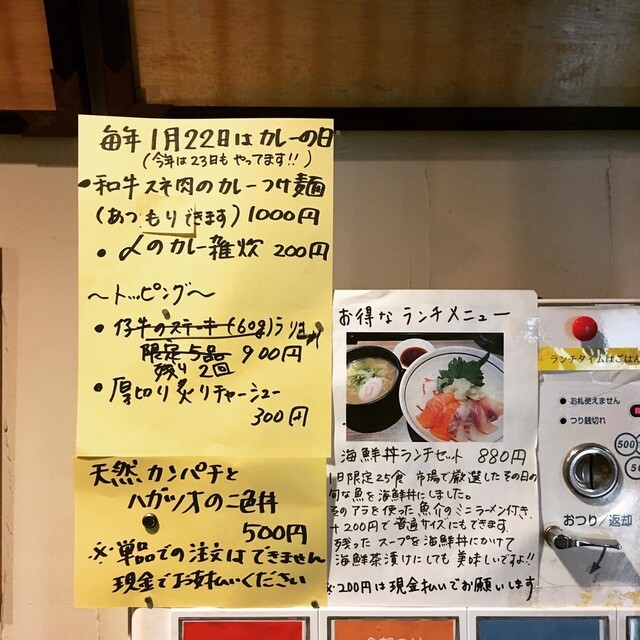 毎年1月22日はカレーの日
(今年は23日もやってます!!)
・和牛スネ肉のカレーつけ麺
(あつもりできます) 1000円
・〆のカレー雑炊 200円
〜トッピング〜
・仔牛のステーキ(60g)
限定5品 900円
残り2回
・厚切り炙りチャーシュー
300円
天然カンパチと
ハガツオの二色丼
500円
※単品での注文はできません
現金でお支払いください
お得なランチメニュー
海鮮丼ランチセット 880円
1日限定25食 市場で厳選したその日の
旬な魚を海鮮丼にしました。
そのアラを使った魚介のミニラーメン付き
+200円で普通サイズにもできます
残ったスープを海鮮丼にかけて
海鮮茶漬けにしても美味しいですよ!!
※200円は現金払いでお願いします
ランチタイムはごはん
お札使えません
つり銭切れ
500
おつり/返却